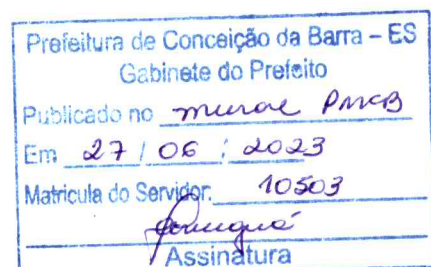 Prefeitura de Conceição da Barra – ES
Gabinete do Prefeito
Publicado no mural PMCB
Em 27 / 06 / 2023
Matricula do Servidor: 10503
Assinatura